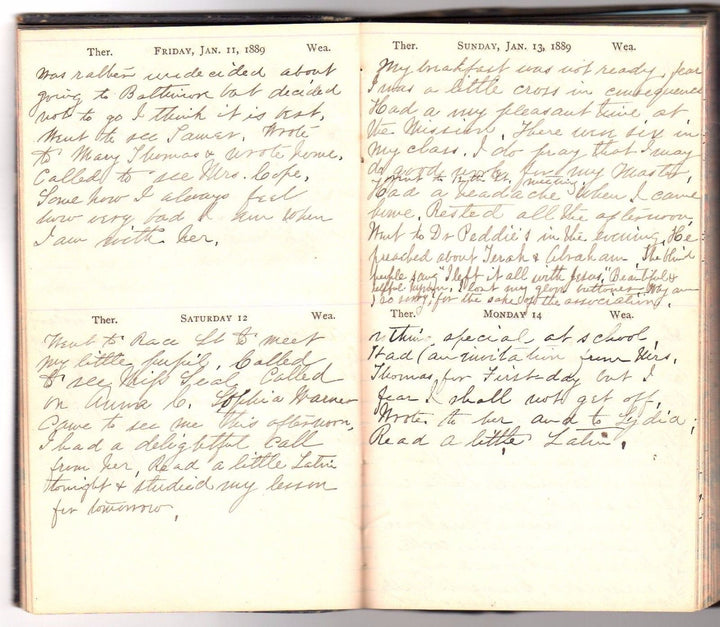 Ther. FRIDAY, JAN. 11, 1889 Wea.
Was rather undecided about
going to Baltimore but decided
not to go I think it is best.
Went to see Sawer. Wrote
to Mary Thomas & wrote home.
Called to see Mrs. Cope.
Some how I always feel
how very bad I am when
I am with her.
Ther. SATURDAY 12 Wea.
Went to Race St to meet
my little pupil. Called
to see Miss Leah Called
on Anna C. Sophia Warner
Came to see me this afternoon,
I had a delightful call
from her, Read a little Latin
tonight & studied my lesson
for tomorrow.
Ther. SUNDAY, JAN. 13, 1889 Wea.
My breakfast was not ready, fear
I was a little cross in consequence
Had a very pleasant time at
the Mission. There were six in
my class. I do pray that I may
do good work for my Master.
Went to meeting
Had a headache when I came
home. Rested all the afternoon
Went to Dr Peddie's in the evening. He
preached about Terah & Abraham. The blind
people sang "I left it all with Jesus," Beautiful &
hymn. I lost my glove buttoner Way am
I so sorry, for the sake of the association.
Ther. MONDAY 14 Wea.
nthing special at school,
Had an invitation from Mrs.
Thomas for First-day but I
fear I shall not get off.
Wrote to her and to Lydia;
Read a little Latin.